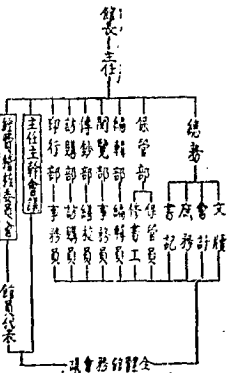 館長
主任
總務
文牘
會計
庶務
書記
保管部
保管員
修書工
編輯部
編輯員
閱覽部
事務員
傳鈔部
總校員
訪購部
訪購員
印行部
事務員
主任主幹會議
經費稽核委員會
館員代表
全體館務會議